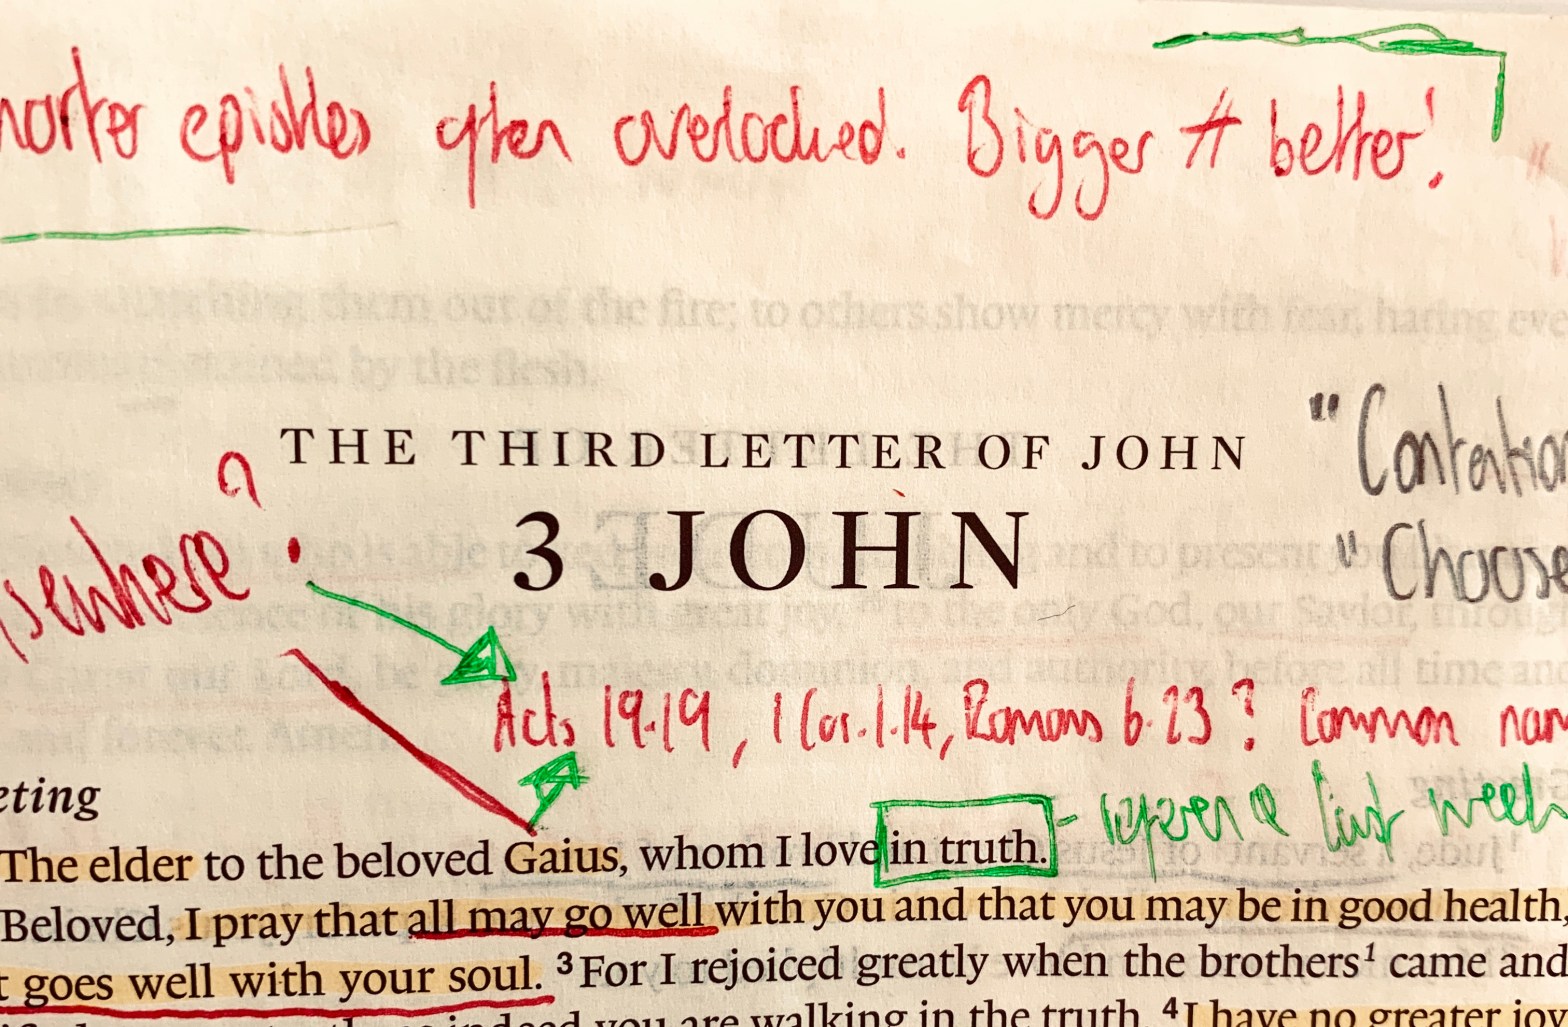 horter epistles often overlooked. Bigger ≠ better!
them out of the fire; to others show mercy with fear, hating eve
stained by the flesh.
THE THIRD LETTER OF JOHN
3 JOHN
"Contention
"Choose
lsewhere?
Acts 19.19, 1 Cor. 1.14, Romans 6.23? Common nam
eting
The elder to the beloved Gaius, whom I love in truth.
- reference last week
Beloved, I pray that all may go well with you and that you may be in good health,
t goes well with your soul. ³For I rejoiced greatly when the brothers¹ came and
indeed you are walking in the truth. ⁴I have no greater joy